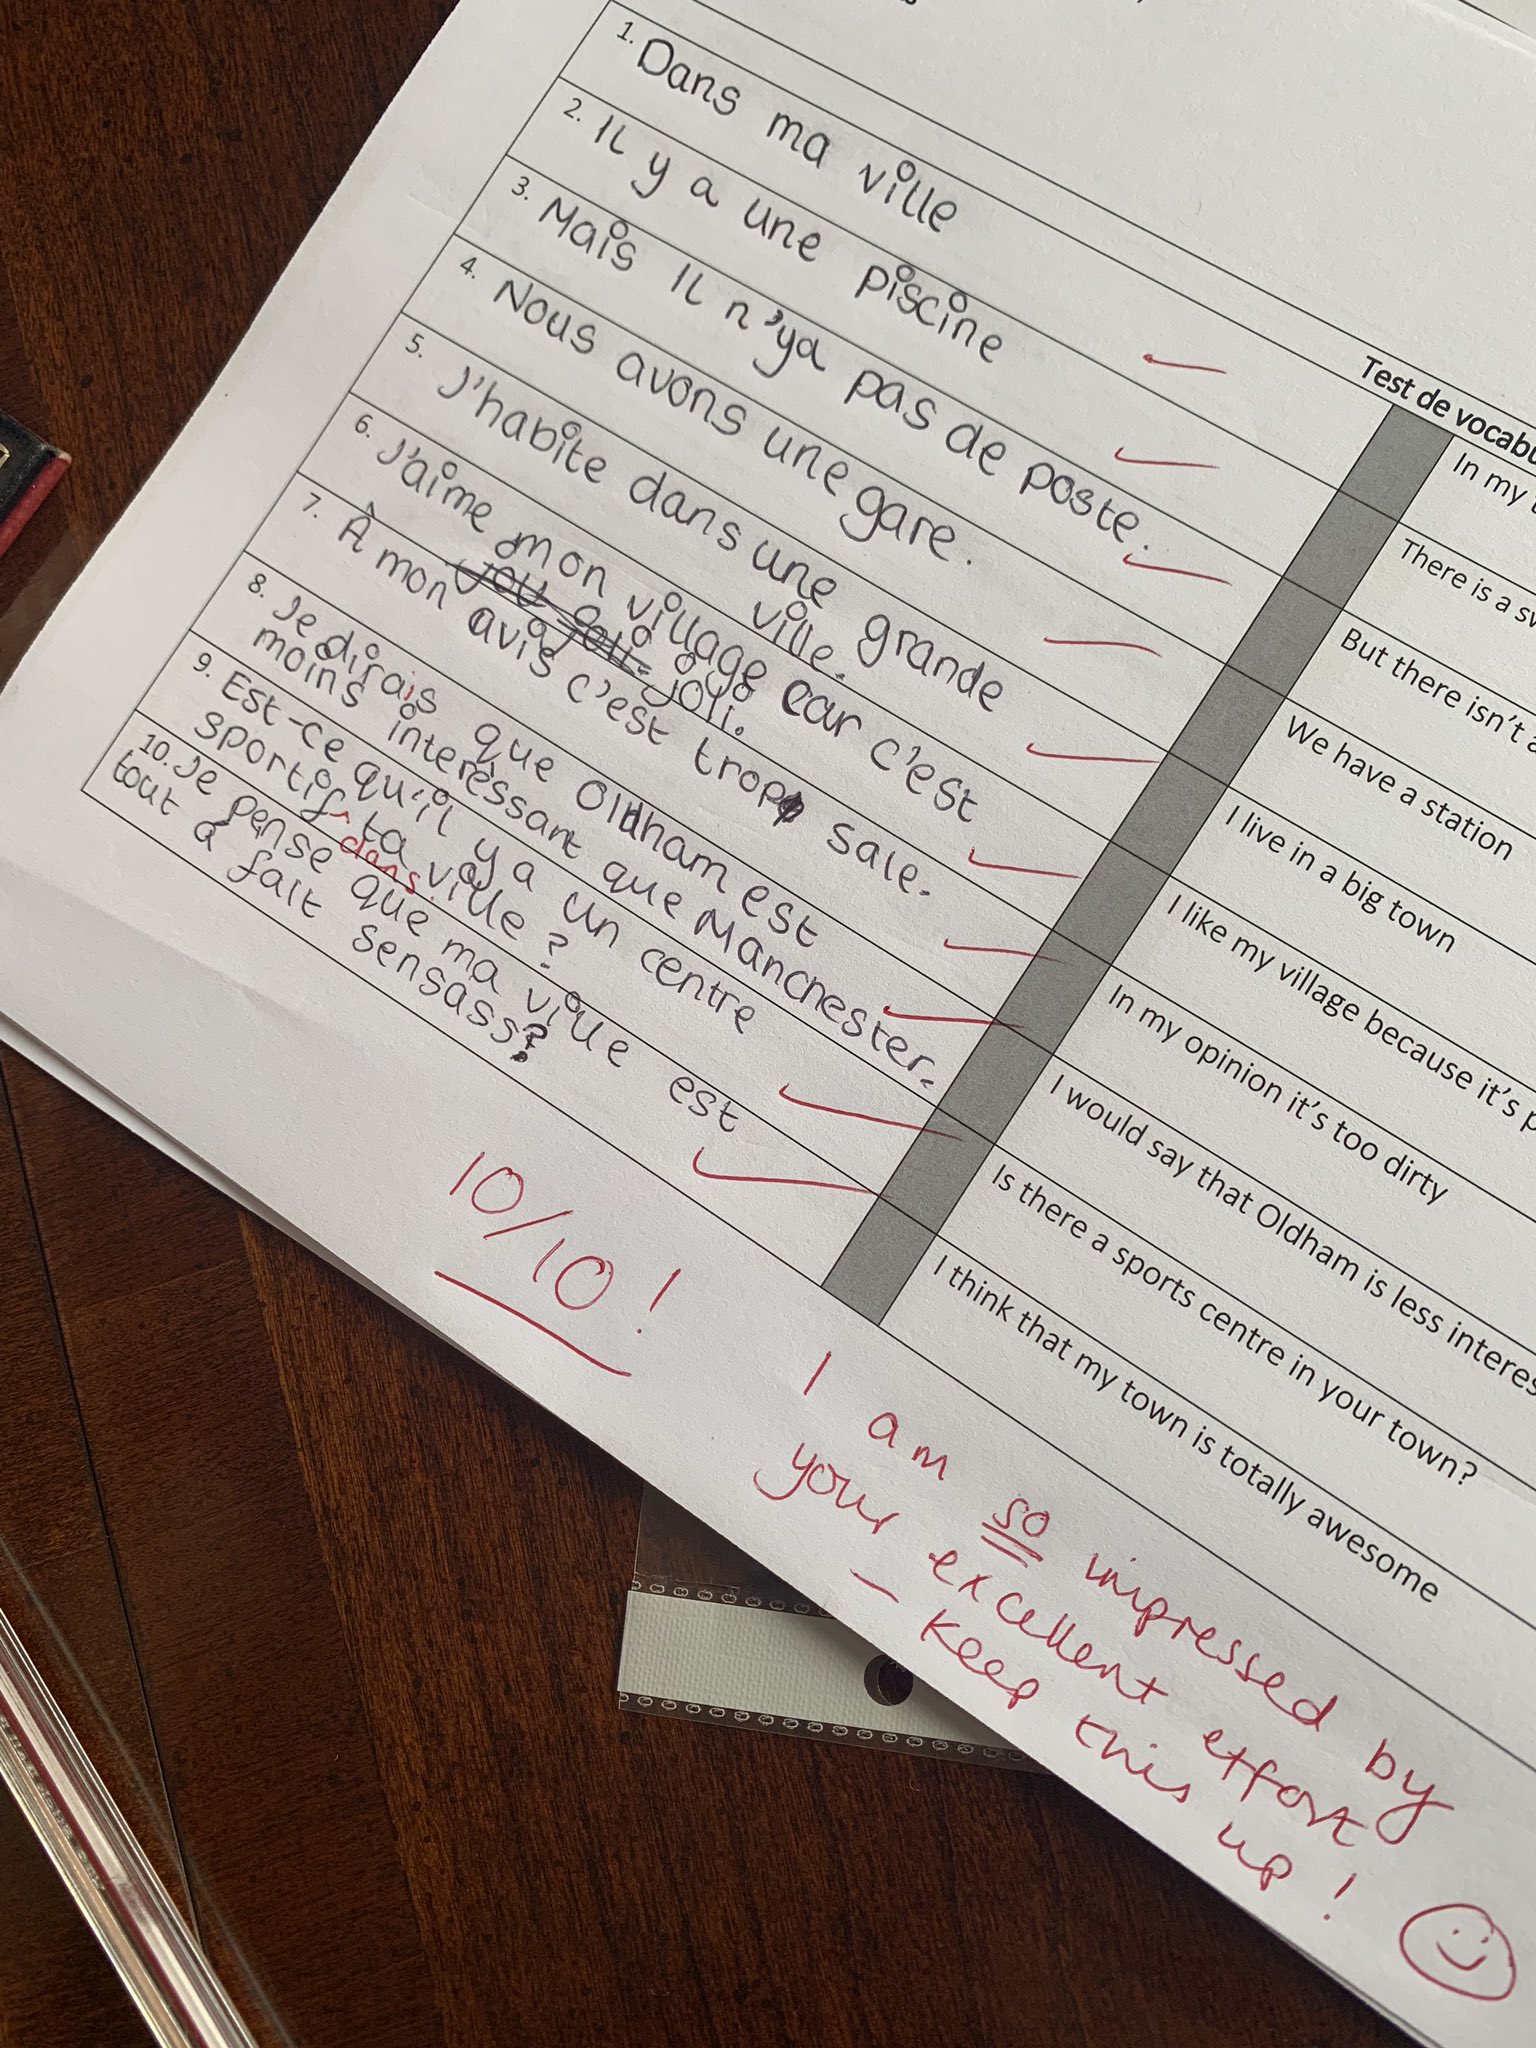 Test de vocabu
1. Dans ma ville
In my t
2. IL y a une piscine
There is a sw
3. Mais IL n'ya pas de poste.
But there isn't a
4. Nous avons une gare.
We have a station
5. J'habite dans une grande
ville.
I live in a big town
6. J'aime mon village car c'est
joli.
I like my village because it's p
7. À mon avis c'est trop sale.
In my opinion it's too dirty
8. Je dirais que Oldham est
moins interessant que Manchester.
I would say that Oldham is less interes
9. Est-ce qu'il y a un centre
sportif ta ville?
dans
Is there a sports centre in your town?
10. Je pense que ma ville est
tout a fait sensass?
I think that my town is totally awesome
10/10!
I am so impressed by
your excellent effort
- Keep this up!